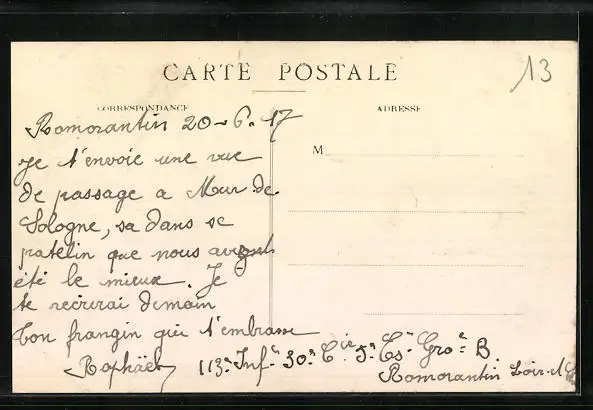 CARTE POSTALE
13
CORRESPONDANCE
ADRESSE
Romorantin 20-6-17
M
Je t'envoie une vue
de passage a Mur de
Sologne, sa dans se
patelin que nous avons
été le mieux. Je
te recrirai demain
Ton frangin qui t'embrasse
Raphaël
113e Infie 30e Cie 5e Gro B.
Romorantin Loir et C